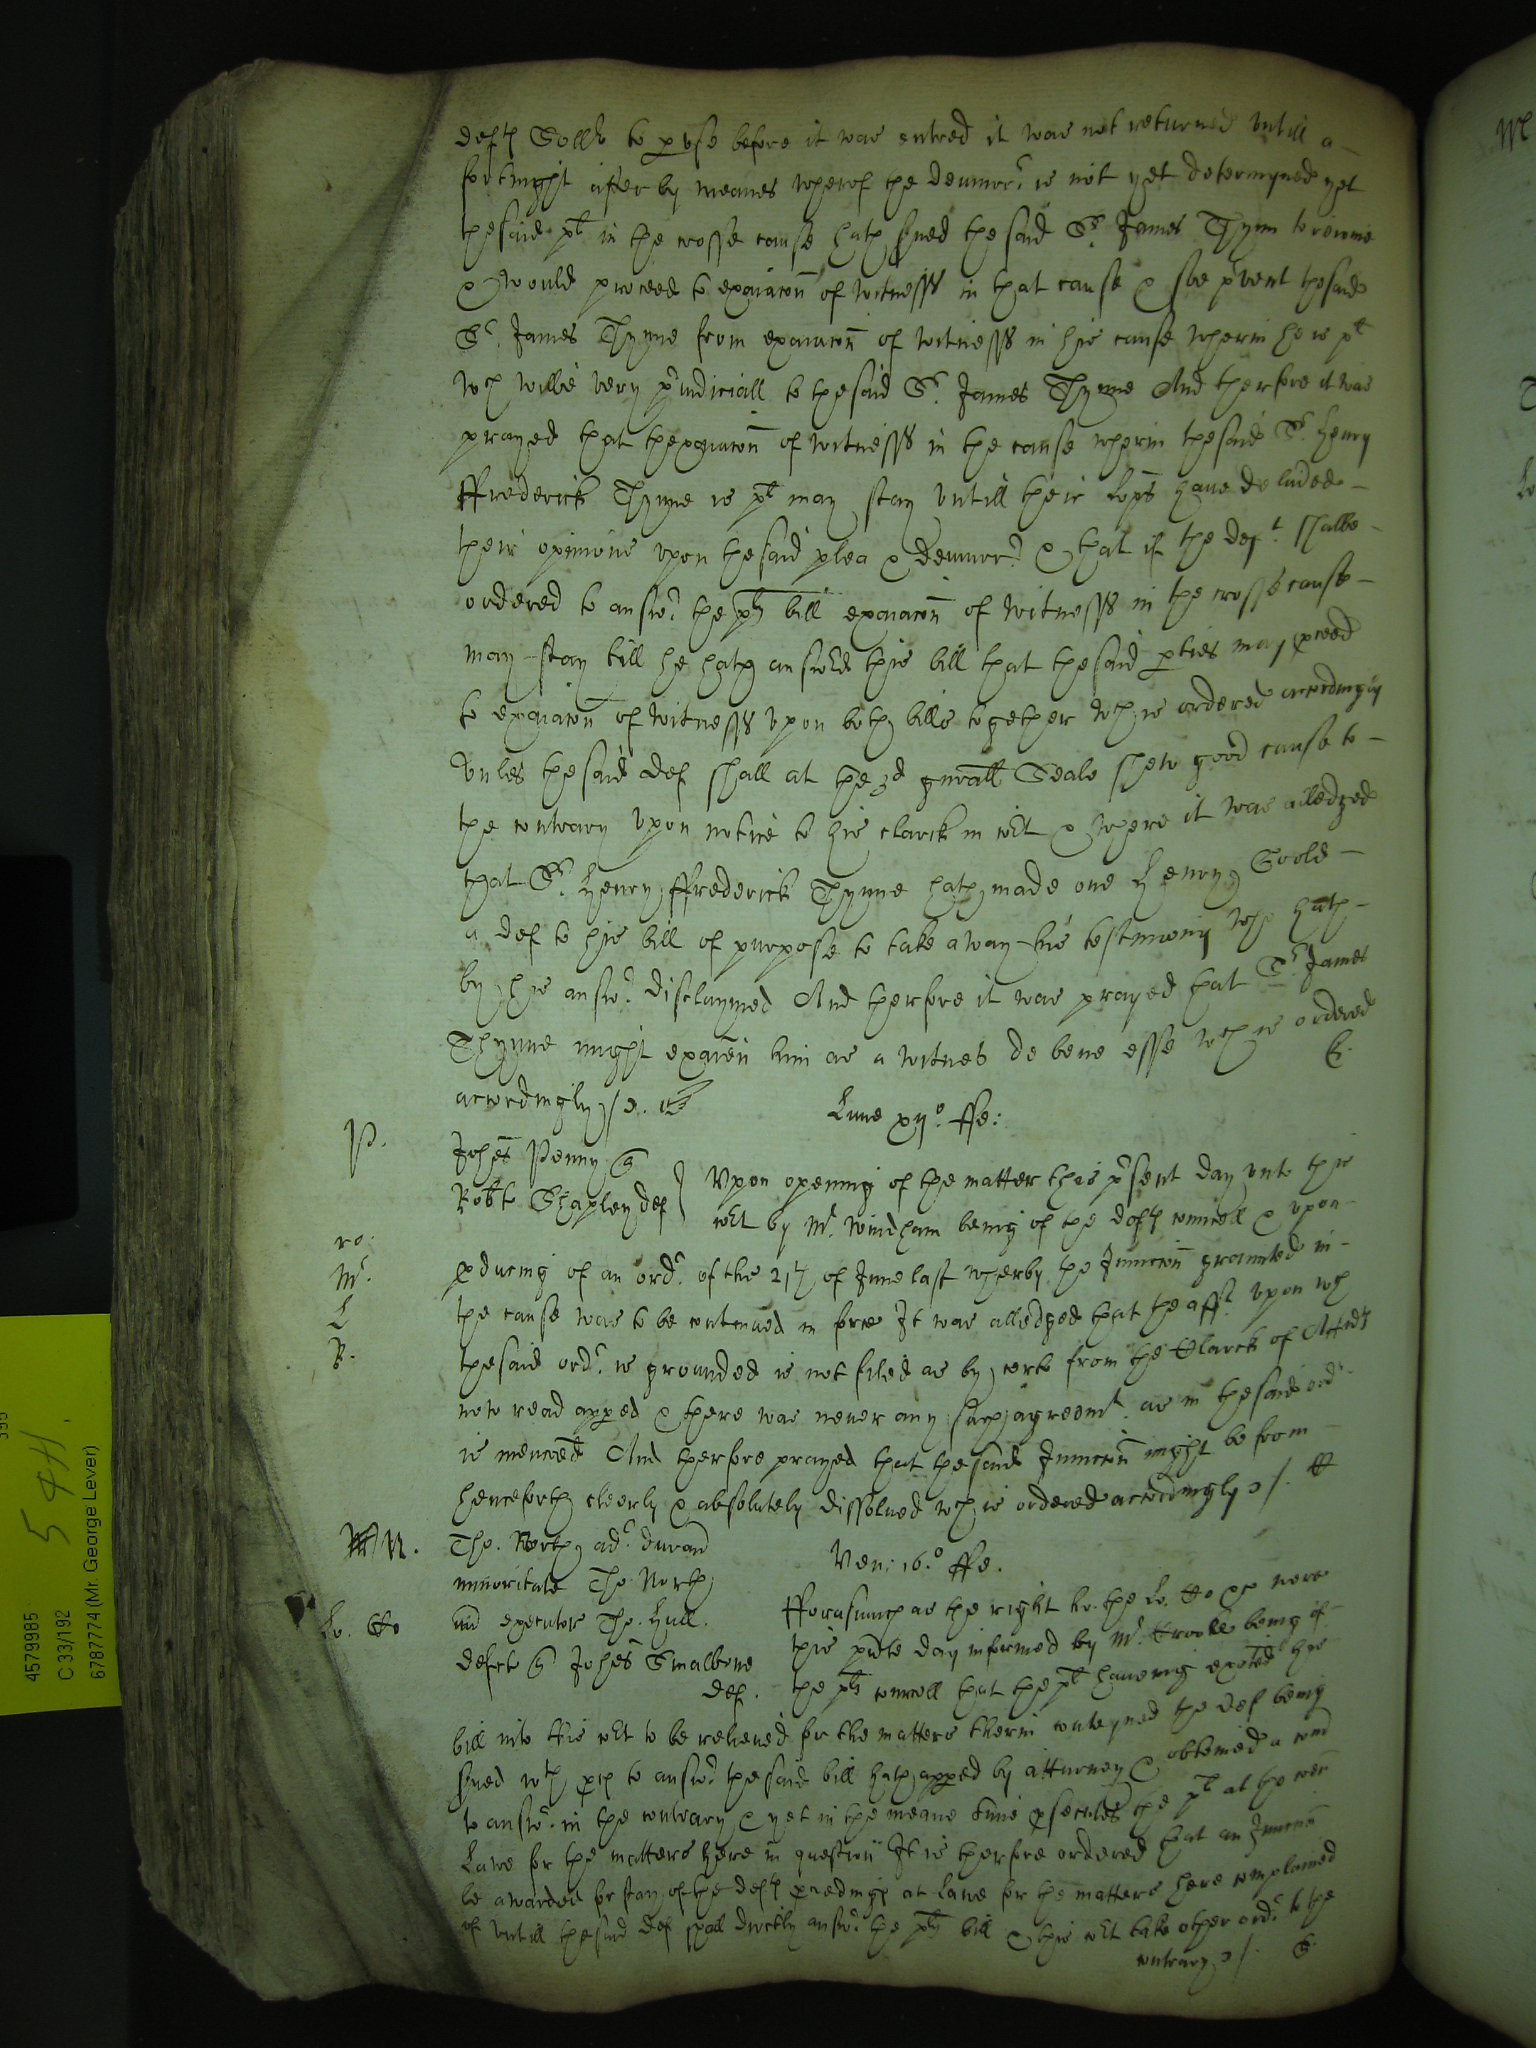 deft Sollr to pvse before it was entred it was not returned vntill a
fortnight after by meanes wherof the demurr. is not yet determyned yet
the said plt in the crosse cause hath serued the said Sr. James Thynn to reioine
& would proceed to exaiacon of witnesses in that cause & soe pvent the said
Sr. James Thynne from exaiacon of witnesses in his cause wherin he is plt
wch wilbe very piudiciall to the said Sr. James Thynne And therfore it was
prayed that thexaiacon of witnesses in the cause wherin the said Sr. Henry
ffrederick Thynne is plt may stay vntill their Lopps haue deliuered
their opinions vpon the said plea & demurr. & that if the deft shalbe
ordered to answr. the plts bill exaiacon of witnesses in the crosse cause
may stay till he hath answered this bill that the said pties may pceed
to exaiacon of witnesses vpon both bills together wch is ordered accordingly
vnles the said def shall at the 3d gnrall Seale shew good cause to
the contrary vpon notice to his clarck in cort & where it was alledged
that Sr. Henry ffrederick Thynne hath made one Henry Goold
a def to his bill of purpose to take away his testimony who hath
by his answr. disclaymed And therfore it was prayed that Sr. James
Thynne might examen him as a witnes de bene esse wch is ordered
accordingly /
Lune xijo. ffe:
P.
Johes Penny q
Robte Shapley def
Vpon opening of the matter this psent day vnto this
cort by Mr. Windham being of the defts councell & vpon
ro.
Mr.
L
R.
pducing of an ordr. of the 21th of June last wherby the Iniunccon graunted in
the cause was to be contenued in force It was alledged that the afft. vpon wch
the said ordr. is grounded is not filed as by certe from the Clarck of Affidts
now read apped & there was neuer any such agreemt. as in the said ordr.
is menconed And therfore prayed that the said Iniunccon might be from
henceforth cleerly & absolutely dissolued wch is ordered accordingly /.
N.
Tho. North adr. duran
minoritate Tho North
Ven: 16.o ffe.
Lo. Co
executor Tho. Hull.
defcto q Johes Smalbone
def.
fforasmuch as the right ho. the Lo. Co &c were
this pnte day informed by Mr. Crooke being of
the plts councell that the plt haueing exhited his
bill into this cort to be releiued for the matters therin conteyned the def being
serued wth pcs to answr. the said bill hath apped by atturney & obteined a com
to answr. in the contrary & yet in the meane time psecutes the plt at the comon
Lawe for the matters here in question It is therfore ordered that an Iniunccon
be awarded for stay of the defts pceedings at Lawe for the matters here complained
of vntill the said def shall directly answr. the plts bill & this cort take other ordr. to the
contrary /.
4579985
C 33/192
6787774 (Mr. George Lever)